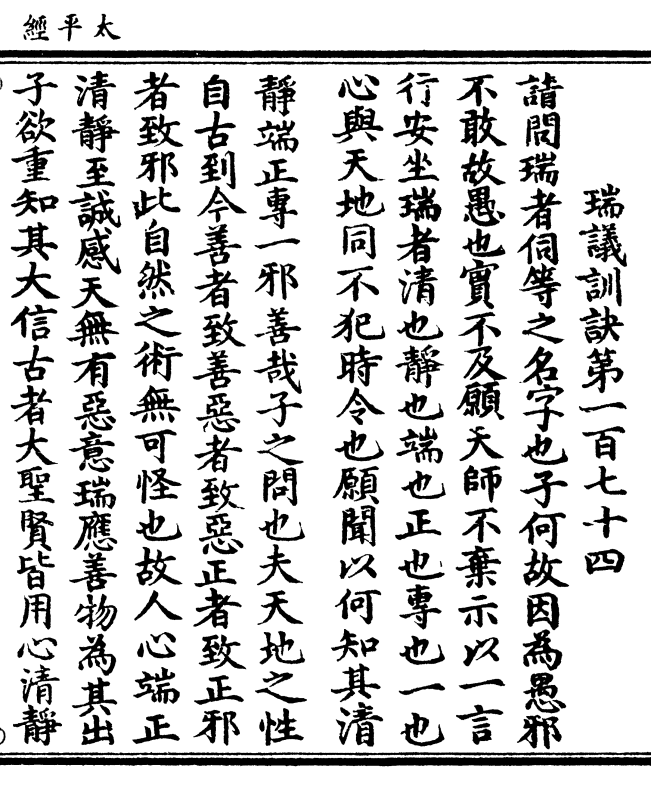 太平經
瑞議訓訣第一百七十四
請問瑞者何等之名字也子何故因為愚邪
不敢故愚也實不及願天師不棄示以一言
行安坐瑞者清也靜也端也正也專也一也
心與天地同不犯時令也願聞以何知其清
靜端正專一邪善哉子之問也夫天地之性
自古到今善者致善惡者致惡正者致正邪
者致邪此自然之術無可怪也故人心端正
清靜至誠感天無有惡意瑞應善物為其出
子欲重知其大信古者大聖賢皆用心清靜